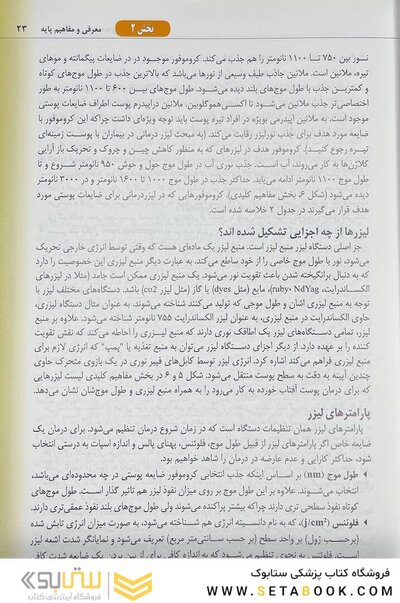 بخش ۲
معرفی و مفاهیم پایه
۲۳
نور بین ۷۵۰ تا ۱۱۰۰ نانومتر را هم جذب می‌کند. کروموفور موجود در در ضایعات پیگمانته و موهای
تیره، ملانین است. ملانین جاذب طیف وسیعی از نورها می‌باشد که بالاترین جذب در طول موج‌های کوتاه
و کمترین جذب با طول موج‌های بلند دیده می‌شود. طول موج‌های بین ۶۰۰ تا ۱۱۰۰ نانومتر به طور
اختصاصی‌تر جذب ملانین می‌شود تا اکسی‌هموگلوبین. ملانین دراپیدرم پوست اطراف ضایعات پوستی
موجود است. به ملانین اپیدرمی بویژه در افراد تیره پوست باید توجه ویژه‌ای داشت چراکه این کروموفور با
ضایعه مورد هدف برای جذب نورلیزر رقابت می‌کند. (به مبحث لیزر درمانی در بیماران با پوست زمینه‌ای
تیره رجوع کنید). کروموفور هدف در لیزرهای که به منظور کاهش چین و چروک و تحریک باز آرایی
کلاژن‌ها به کار می‌روند، آب است. جذب نوری آب در طول موج حول و حوش ۹۵۰ نانومتر شروع و تا
طول موج ۱۱۰۰ نانومتر ادامه می‌یابد. حداکثر جذب در طول موج ۱۰۰۰ تا ۱۶۰۰ نانومتر و در ۳۰۰۰ نانومتر
دیده می‌شود (شکل ۶، بخش مفاهیم کلیدی). کروموفورهایی که در لیزردرمانی برای ضایعات پوستی مورد
هدف قرار می‌گیرند در جدول ۲ خلاصه شده است.
لیزرها از چه اجزایی تشکیل شده اند؟
جز اصلی دستگاه لیزر منبع لیزر است. منبع لیزر یک ماده‌ای هست که وقتی توسط انرژی خارجی تحریک
می‌شود، نور با طول موج خاصی را از خود ساطع می‌کند. به عبارت دیگر منبع لیزری این خصوصیت را دارد
که به دنبال برانگیخته شدن باعث تقویت نور می‌شود. یک منبع لیزری ممکن است جامد (مثلا در لیزرهای
الکساندرایت، ruby، NdYag)، مایع (مثل dyes) یا گاز (مثل لیزر co2) باشد. دستگاه‌های مختلف لیزر با
توجه به منبع لیزری اشان و طول موجی که تولید می‌کنند شناخته می‌شوند. به عنوان مثال دستگاه لیزری،
حاوی الکساندرایت در منبع لیزری، به عنوان لیزر الکساندرایت ۷۵۵ نانومتر شناخته می‌شود. علاوه بر منبع
لیزر، تمامی دستگاه‌های لیزر یک اطاقک نوری دارند که منبع لیزری را احاطه می‌کند که نقش تقویت
کننده را بر عهده دارد. از دیگر اجزای دستگاه لیزر می‌توان به منبع تغذیه یا "پمپ" که انرژی لازم برای
منبع لیزری فراهم می‌کند اشاره کرد. انرژی لیزر توسط کابل‌های فیبر نوری در یک بازوی متحرک حاوی
چندین آیینه به دقت به سطح پوست منتقل می‌شود. شکل ۵ و ۶ در بخش مفاهیم کلیدی لیست لیزرهایی
که برای درمان پوست آفتاب خورده به کار می‌رود را به همراه منبع لیزری و طول موج‌شان نشان می‌دهد.
پارامترهای لیزر
پارامترهای لیزر همان تنظیمات دستگاه است که در زمان شروع درمان تنظیم می‌شود. برای درمان یک
ضایعه خاص اگر پارامترهای لیزر از قبیل طول موج، فلوئنس، پهنای پالس و اندازه اسپات به درستی انتخاب
شود، حداکثر کارایی و عدم عارضه در درمان را شاهد خواهیم بود.
طول موج (nm) بر اساس اینکه جذب انتخابی کروموفور ضایعه پوستی در چه محدوده‌ای می‌باشد،
انتخاب می‌شوند. علاوه بر این طول موج بر روی میزان نفوذ لیزر هم تاثیر گذار است. طول موج‌های
کوتاه نفوذ سطحی تری دارند چراکه بیشتر پراکنده می‌شوند ولی طول موج‌های بلند نفوذ عمقی‌تری دارند.
فلوئنس (j/cm²)، که به نام دانسیته انرژی هم شناخته می‌شود، به صورت میزان انرژی تابش شده
(برحسب ژول) بر واحد سطح (بر حسب سانتی‌متر مربع) تعریف می‌شود و نمایانگر شدت اشعه لیزر
است. فلوئنس به نحوی تنظیم می‌شود که به اندازه کافی برای از بین بردن یک ضایعه شدت کافی
فروشگاه کتاب پزشکی ستابوک
WWW.SETABOOK.COM
ستابوک
فروشگاه اینترنتی کتاب